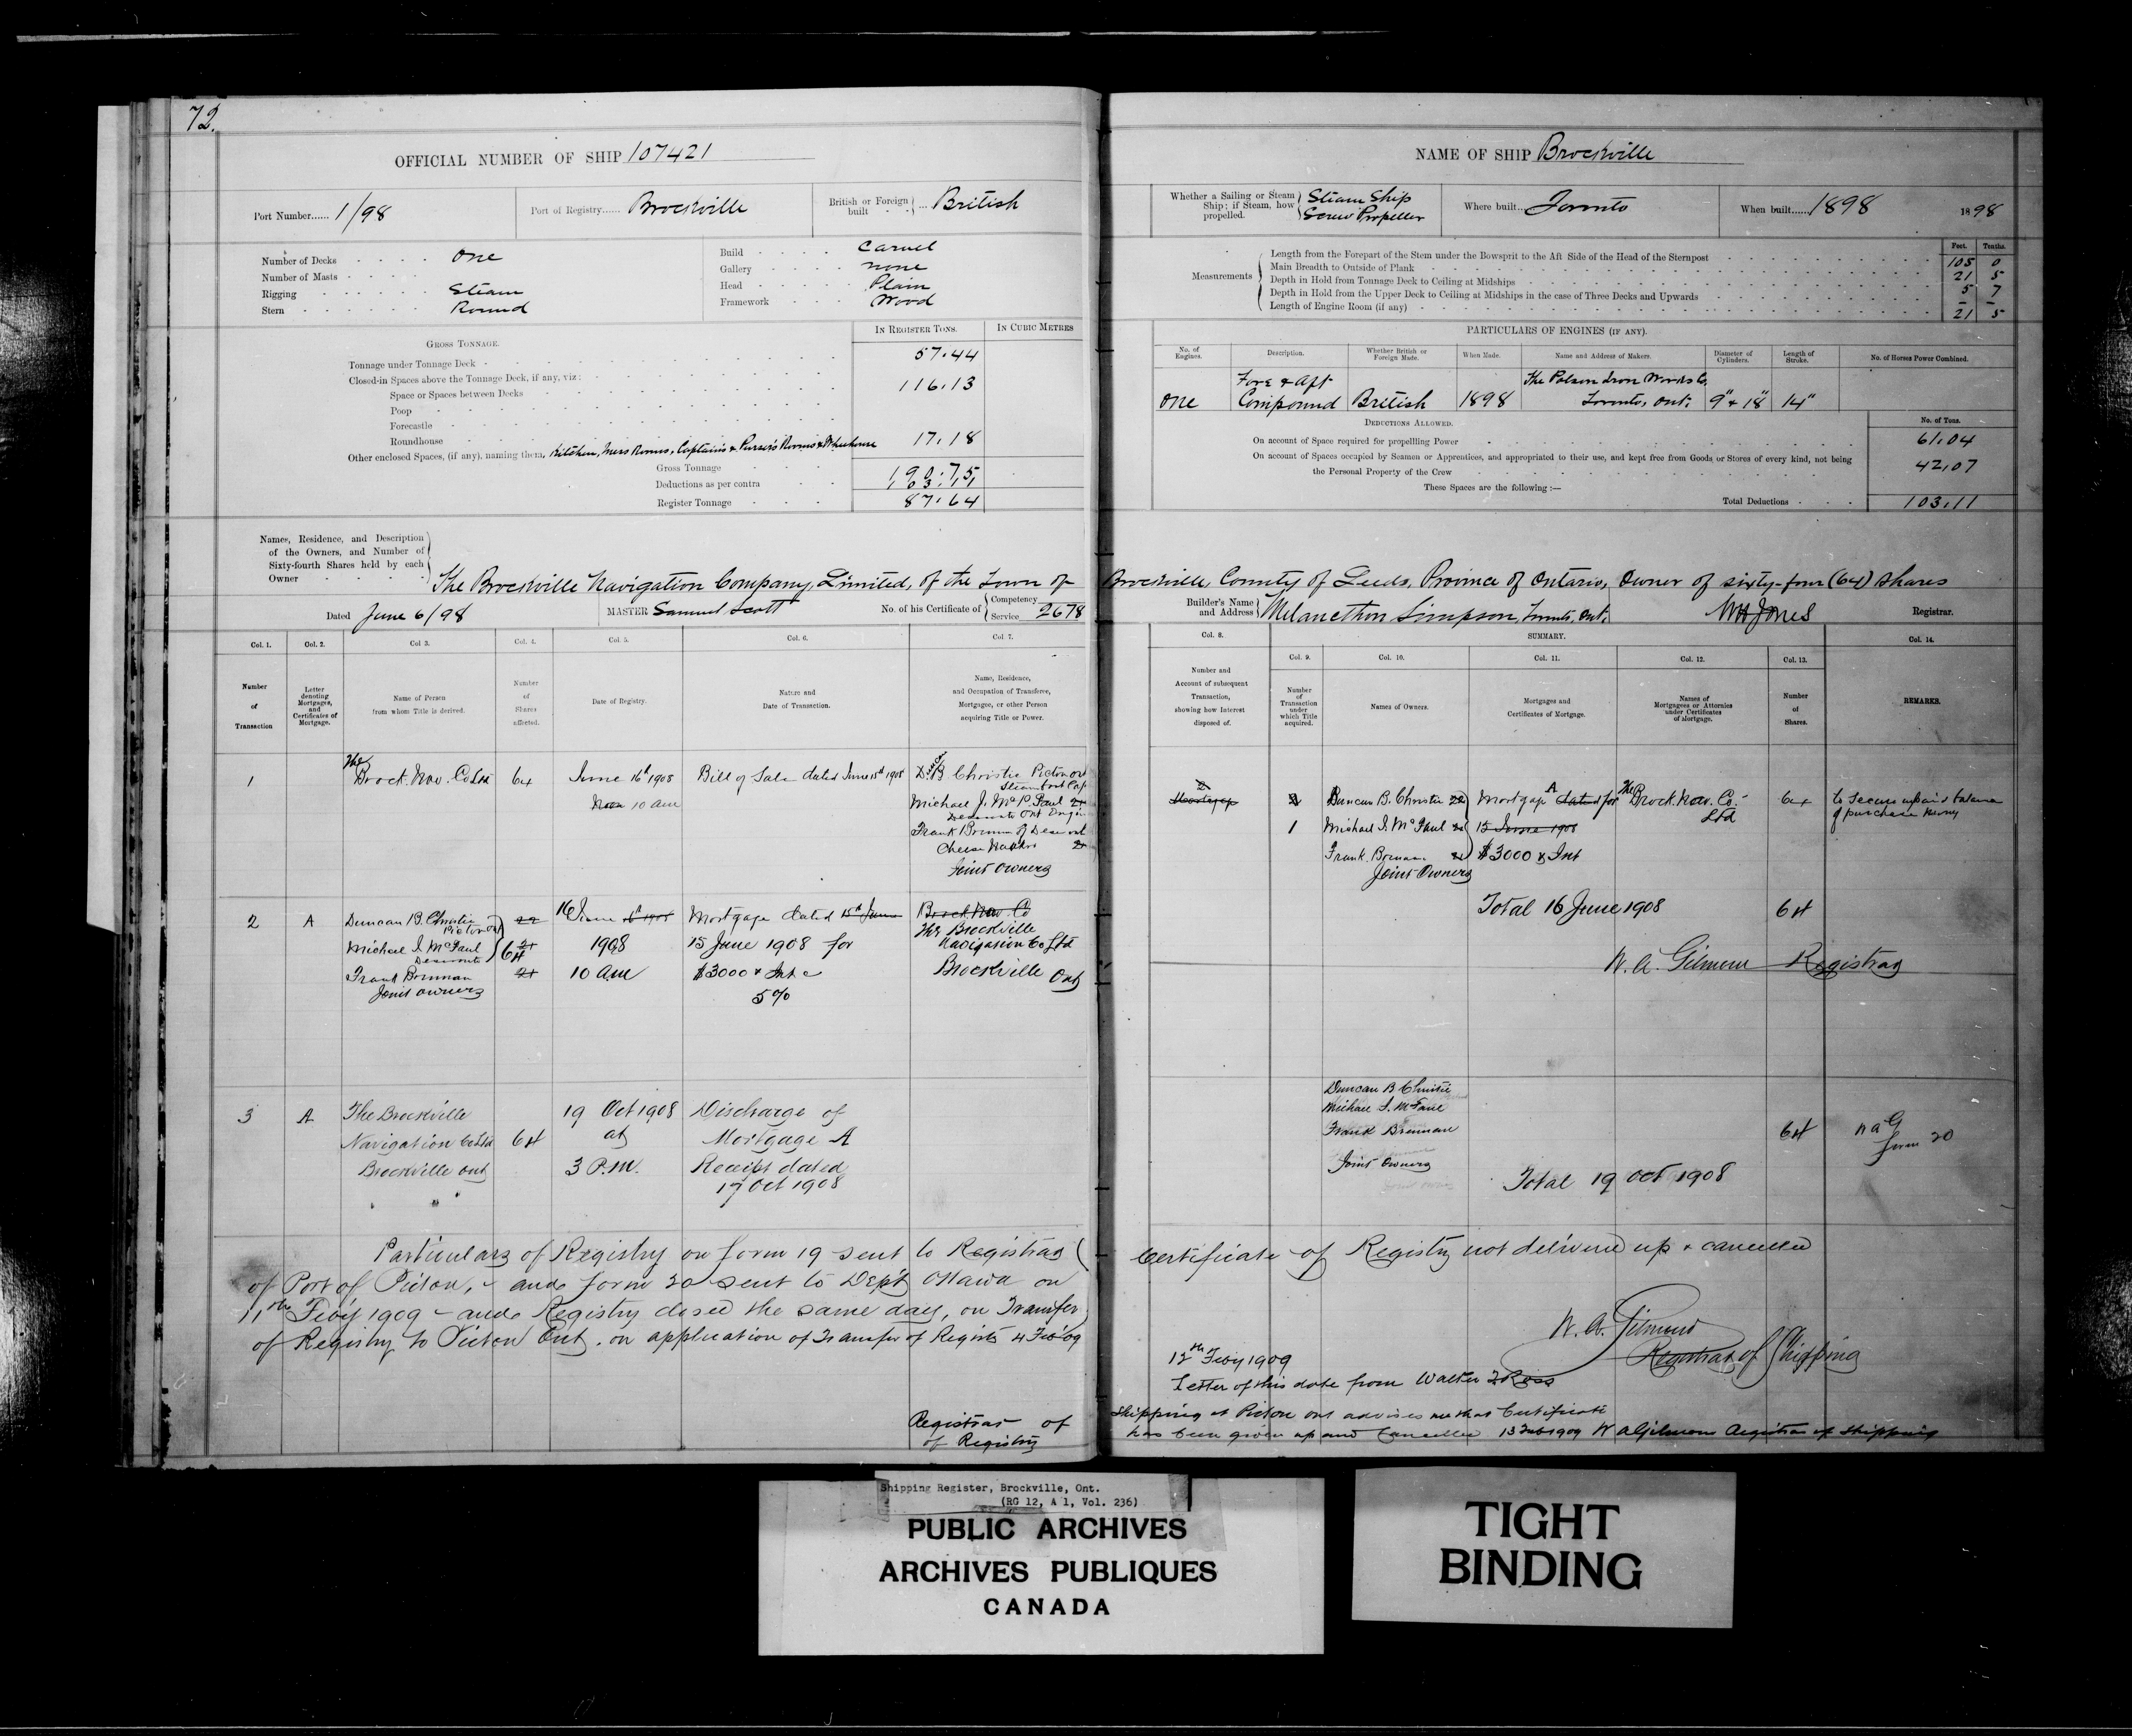 72.
OFFICIAL NUMBER OF SHIP 107421
Port Number...... 1/98
Port of Registry...... Brockville
British or Foreign built ... British
Number of Decks One
Number of Masts
Rigging Steam
Stern Round
Build Carvel
Gallery none
Head Plain
Framework Wood
IN REGISTER TONS.
IN CUBIC METRES
GROSS TONNAGE.
Tonnage under Tonnage Deck 57.44
Closed-in Spaces above the Tonnage Deck, if any, viz:
Space or Spaces between Decks 116.13
Poop
Forecastle
Roundhouse
Other enclosed Spaces, (if any), naming them, Kitchen, Mess Rooms, Captain's & Purser's Rooms & Wheelhouse 17.18
Gross Tonnage 190.75
Deductions as per contra 103.11
Register Tonnage 87.64
Names, Residence, and Description
of the Owners, and Number of
Sixty-fourth Shares held by each
Owner
The Brockville Navigation Company, Limited, of the Town of
Dated June 6/98
MASTER Samuel Scott
No. of his Certificate of Competency Service 2678
Col. 1. Col. 2. Col 3. Col. 4. Col. 5. Col. 6. Col. 7.
Number of Transaction
Letter denoting Mortgages, and Certificates of Mortgage.
Name of Person from whom Title is derived.
Number of Shares affected.
Date of Registry.
Nature and Date of Transaction.
Name, Residence, and Occupation of Transferee, Mortgagee, or other Person acquiring Title or Power.
1 The Brock. Nav. Co Ltd 64 June 16th 1908 10 am Bill of Sale dated June 15th 1908
B Christie Picton Ont
Steamboat Cap
Michael J. McFaul
Deseronto Ont
Frank Brennan of Deseront
Cheese
Joint Owners
2 A Duncan B. Christie
Picton Ont
Michael J. McFaul
Deseronto
Frank Brennan
Joint owners
64
16 June
1908
10 am
Mortgage dated 15th June
15 June 1908 for
$3000 & Int
5%
Brock. Nav. Co
The Brockville
Navigation Co Ltd
Brockville Ont
3 A The Brockville
Navigation Co Ltd
Brockville Ont
64
19 Oct 1908
at
3 P.M.
Discharge of
Mortgage A
Receipt dated
17 Oct 1908
Particulars of Registry on form 19 sent to Registrar
of Port of Picton, and form 20 sent to Dept Ottawa on
11th Feby 1909 - and Registry closed the same day, on Transfer
of Registry to Picton Ont. on application of Transfer of Registry 4 Feb 09
Registrar of
of Registry
NAME OF SHIP Brockville
Whether a Sailing or Steam Ship; if Steam, how propelled. Steam Ship Screw Propeller
Where built... Toronto
When built...... 1898
1898
Feet. Tenths.
Measurements
Length from the Forepart of the Stem under the Bowsprit to the Aft Side of the Head of the Sternpost 105 0
Main Breadth to Outside of Plank 21 5
Depth in Hold from Tonnage Deck to Ceiling at Midships 5 7
Depth in Hold from the Upper Deck to Ceiling at Midships in the case of Three Decks and Upwards - -
Length of Engine Room (if any) 21 5
PARTICULARS OF ENGINES (IF ANY).
No. of Engines.
Description.
Whether British or Foreign Made.
When Made.
Name and Address of Makers.
Diameter of Cylinders.
Length of Stroke.
No. of Horses Power Combined.
One
Fore & Aft Compound
British
1898
The Polson Iron Works Co,
Toronto, Ont.
9" & 18"
14"
DEDUCTIONS ALLOWED.
No. of Tons.
On account of Space required for propelling Power 61.04
On account of Spaces occupied by Seamen or Apprentices, and appropriated to their use, and kept free from Goods or Stores of every kind, not being
the Personal Property of the Crew 42.07
These Spaces are the following :—
Total Deductions 103.11
Brockville, County of Leeds, Province of Ontario, Owner of sixty-four (64) shares
Builder's Name and Address Melancthon Simpson, Toronto, Ont.
WH Jones Registrar.
Col. 8. SUMMARY. Col. 14.
Col. 9. Col. 10. Col. 11. Col. 12. Col. 13.
Number and Account of subsequent Transaction, showing how Interest disposed of.
Number of Transaction under which Title acquired.
Names of Owners.
Mortgages and Certificates of Mortgage.
Names of Mortgagees or Attornies under Certificates of Mortgage.
Number of Shares.
REMARKS.
2
Mortgage
1
Duncan B. Christie
Michael J. McFaul
Frank Brennan
Joint Owners
Mortgage A dated for
15 June 1908
$3000 & Int
The Brock. Nav. Co.
Ltd
64
to secure unpaid balance
of purchase money
Total 16 June 1908 64
W. A. Gilmour Registrar
Duncan B Christie
Michael J. McFaul
Frank Brennan
Joint Owners
64
W A G
form 20
Total 19 Oct 1908
Certificate of Registry not delivered up & cancelled
W. A. Gilmour
Registrar of Shipping
12th Feby 1909
Letter of this date from Walter Ross
Shipping at Picton Ont advises me that Certificate
has been given up and cancelled 13 Feb 1909 W A Gilmour Registrar of Shipping
Shipping Register, Brockville, Ont.
(RG 12, A 1, Vol. 236)
PUBLIC ARCHIVES
ARCHIVES PUBLIQUES
CANADA
TIGHT
BINDING